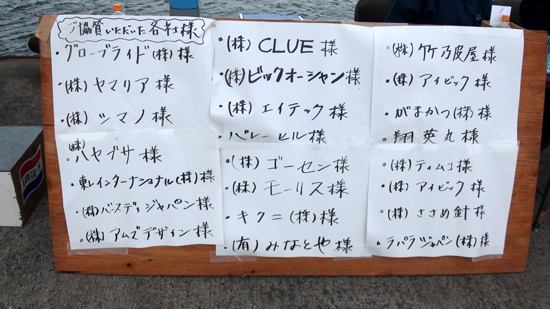 ご協賛いただいた各社様
・グローブライド(株)様
・(株)ヤマリア様
・(株)シマノ様
・(株)ハヤブサ様
・東レインターナショナル(株)様
・(株)バスディジャパン様
・(株)アムズデザイン様
・(株)CLUE様
・(株)ビックオーシャン様
・(株)エイテック様
・バレーヒル様
・(株)ゴーセン様
・(株)モーリス様
・キクニ(株)様
・(有)みなとや様
・(株)竹乃皮屋様
・(株)アイビック様
・がまかつ(株)様
・翔英丸様
・(株)ティムコ様
・(株)アイビック様
・(株)ささめ針様
・ラパラジャパン(株)様